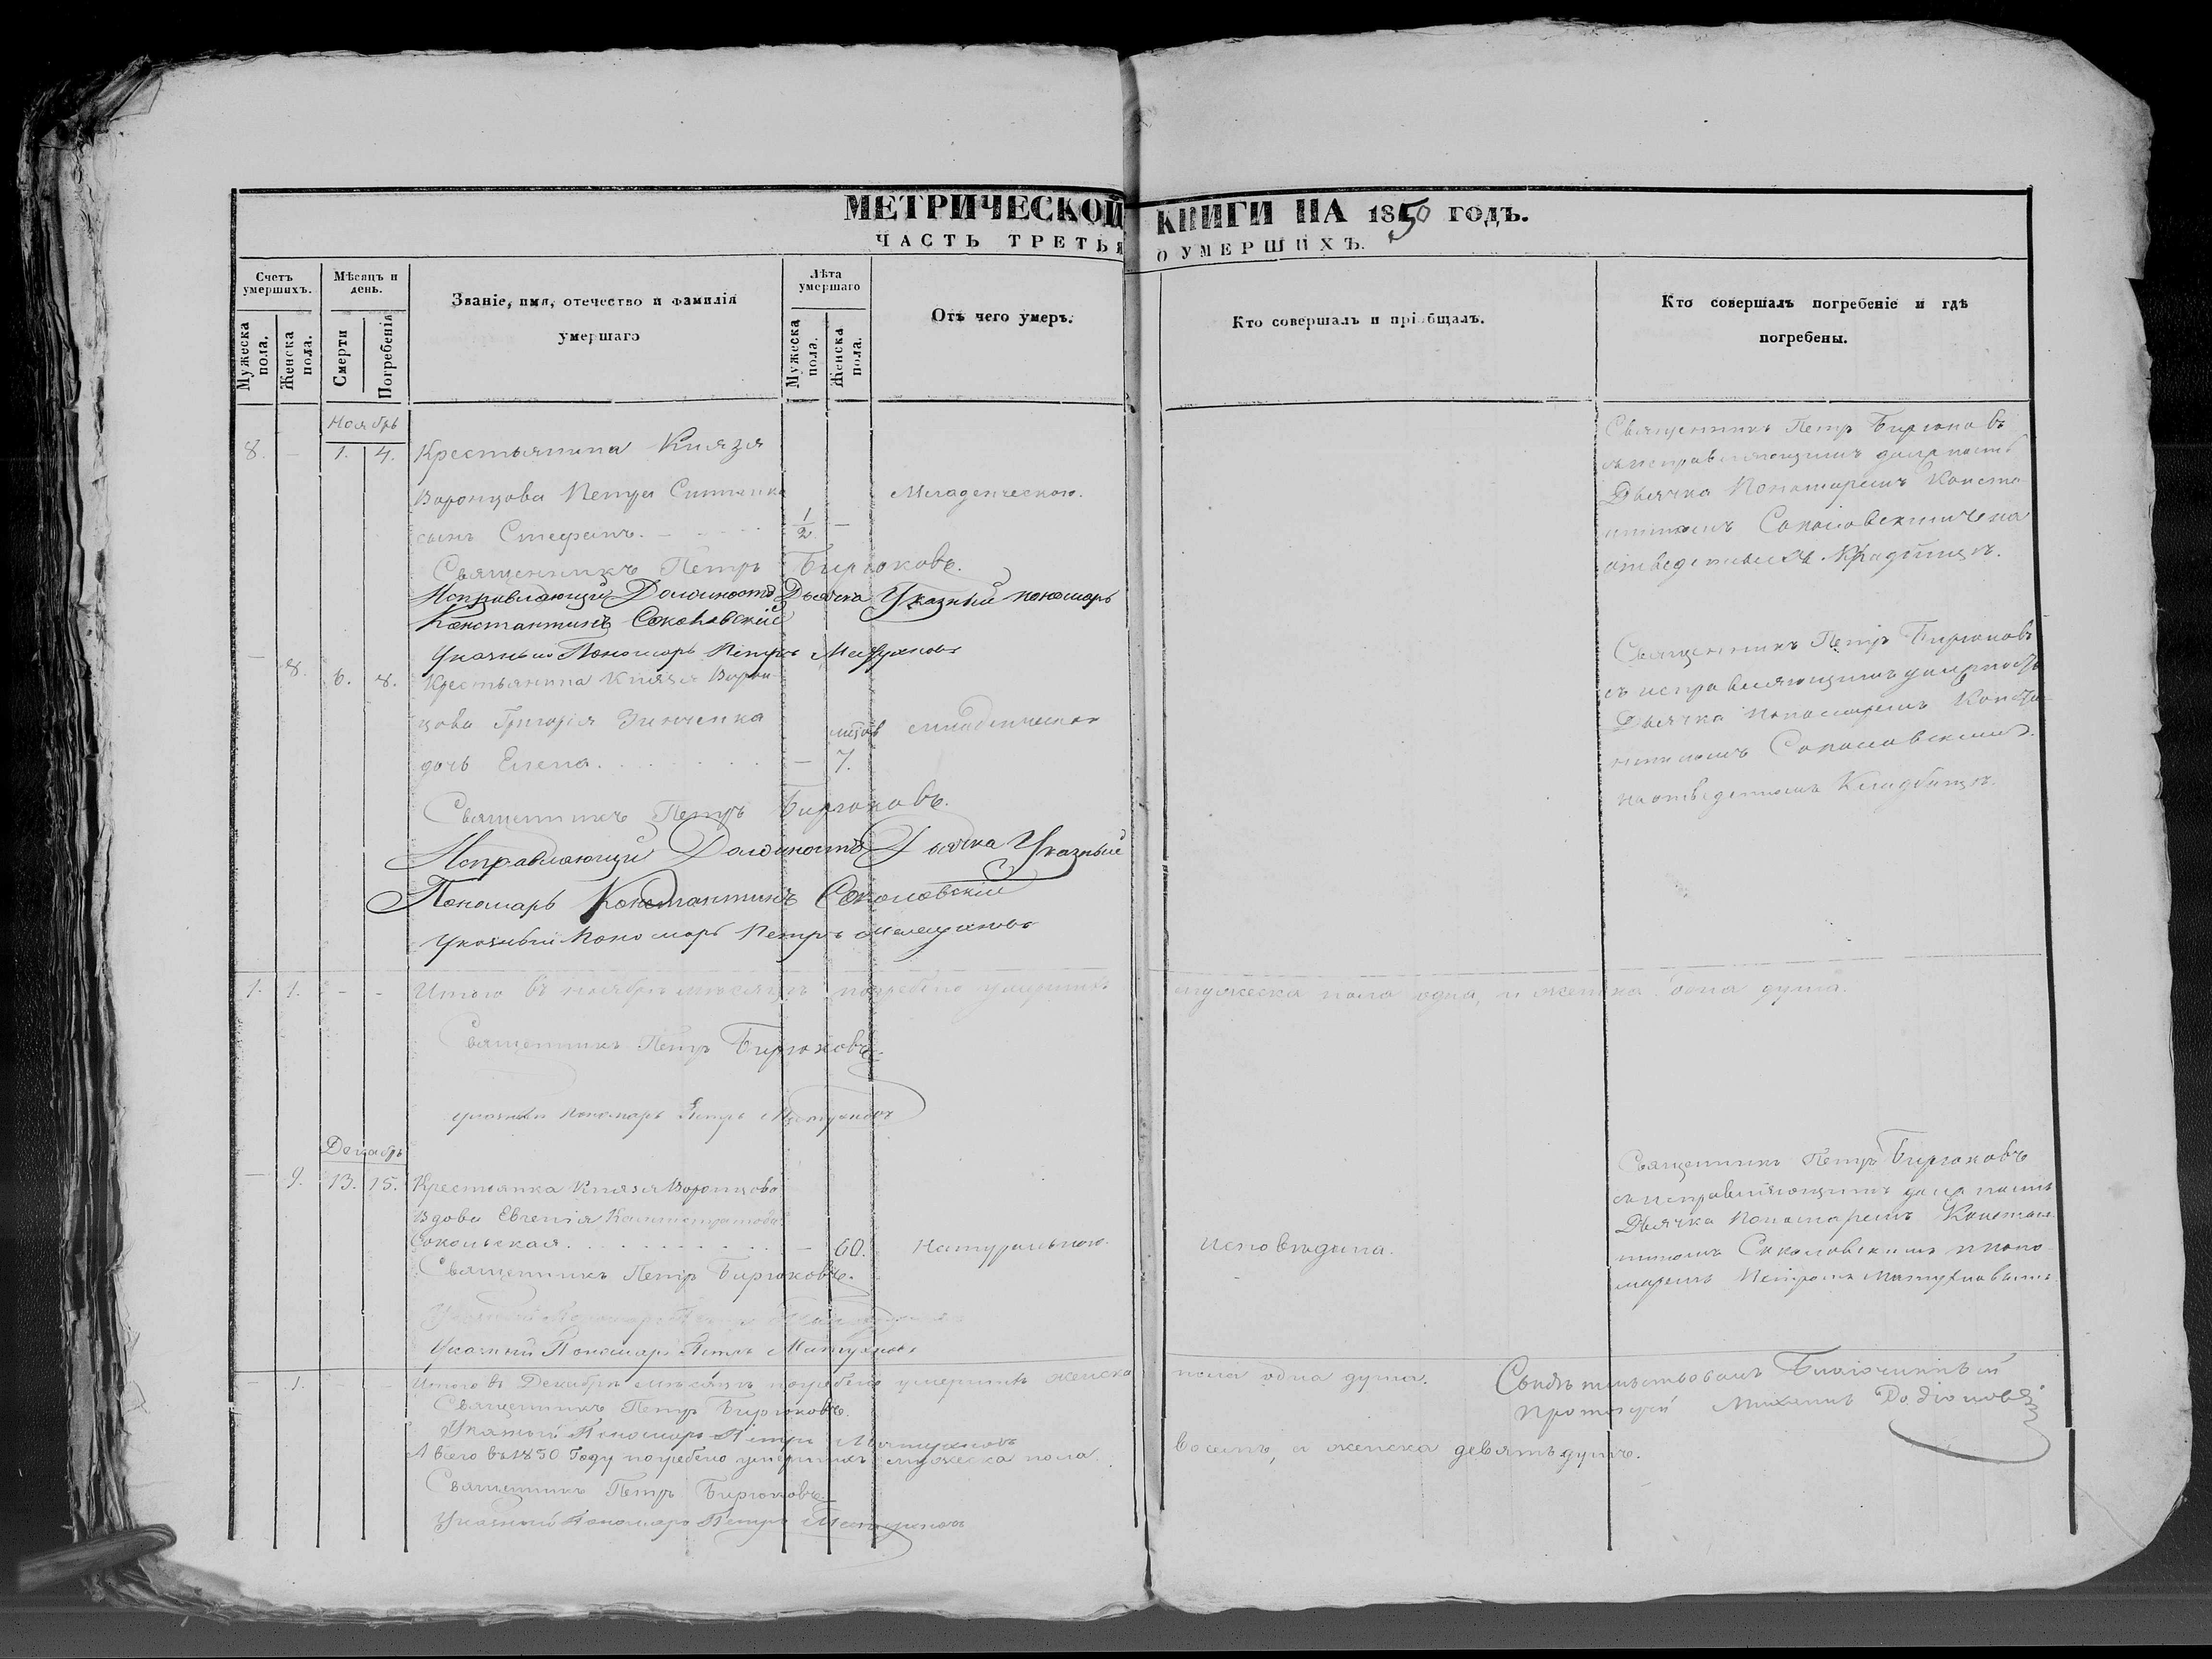 МЕТРИЧЕСКОЙ КНИГИ НА 1850 ГОДЪ.
ЧАСТЬ ТРЕТЬЯ О УМЕРШИХЪ.
Счетъ умершихъ.
Мужеска пола.
Женска пола.
Мѣсяцъ и день.
Смерти
Погребенія
Званіе, имя, отечество и фамилія
умершаго
Лѣта умершаго
Мужеска пола.
Женска пола.
Отъ чего умеръ.
Кто совершалъ и пріобщалъ.
Кто совершалъ погребеніе и гдѣ
погребены.
Ноябрь
8. - 1. 4. Крестьянина Князя
Воронцова Петра
сынъ Стефанъ. 1/2 -
Младенческою.
Священникъ Петръ Бирюковъ
съ исправляющимъ должность
Дьячка Пономаремъ Конста
нтиномъ Соколовскимъ на
отведенномъ Кладбищѣ.
Священникъ Петръ Бирюковъ.
Исправляющій Должность Дьячка Указный пономарь
Константинъ Соколовскій
Указный Пономарь Петръ
- 8. 6. 8. Крестьянина Князя Ворон-
цова Григорія Зинченка
дочь Елена. - 7.
младенческою
Священникъ Петръ Бирюковъ
съ исправляющимъ должность
Дьячка Пономаремъ Конста-
нтиномъ Соколовскимъ
на отведенномъ Кладбищѣ.
Священникъ Петръ Бирюковъ.
Исправляющій Должность Дьячка Указный
Пономарь Константинъ Соколовскій
Указный Пономарь Петръ
1. 1. - - Итого въ ноябрѣ мѣсяцѣ погребено умершихъ мужеска пола одна, и женска одна душа.
Священникъ Петръ Бирюковъ.
Указный Пономарь Петръ
Декабрь
- 9. 13. 15. Крестьянка Князя Воронцова
Вдова Евгенія
Сокольская. - 60.
Натуральною.
Исповѣдана.
Священникъ Петръ Бирюковъ
съ исправляющимъ должность
Дьячка Пономаремъ Констан-
тиномъ Соколовскимъ и поно-
маремъ Петромъ
Священникъ Петръ Бирюковъ.
Указный Пономарь Петръ
- 1. - - Итого въ Декабрѣ мѣсяцѣ погребено умершихъ женска пола одна душа.
Священникъ Петръ Бирюковъ.
Указный Пономарь Петръ
Свидѣтельствовалъ Благочинный
Протоіерей Михаилъ Родіоновъ
А всего въ 1850 Году погребено умершихъ мужеска пола восемь, и женска девять душъ.
Священникъ Петръ Бирюковъ.
Указный Пономарь Петръ